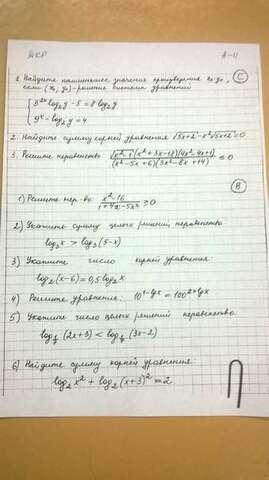 ДКР А-11
1. Найдите наименьшее значение произведения x₀y₀, C
если (x₀, y₀) - решение системы уравнений
{ 3²ˣ log₂y - 5 = 8 log₂y
9ˣ - log₂y = 4
2. Найдите сумму корней уравнения
3. Решите неравенство (x²+3x-18)(4x²-4x+1) / (x²-5x+6)(3x²-8x+14) ≤ 0
B
1) Решите нер-во: x²-16 / 1+4x-5x² ≥ 0
2) Укажите сумму целых решений неравенства
log₃x > log₃(5-x)
3) Укажите число корней уравнения:
log₂(x-6) = 0,5 log₂x
4) Решите уравнение: 10¹⁻ˡᵍˣ = 100²⁺ˡᵍˣ
5) Укажите число целых решений неравенства
(2x+3) < (3x-2)
6) Найдите сумму корней уравнения:
log₂x² + log₂(x+3)² = 2